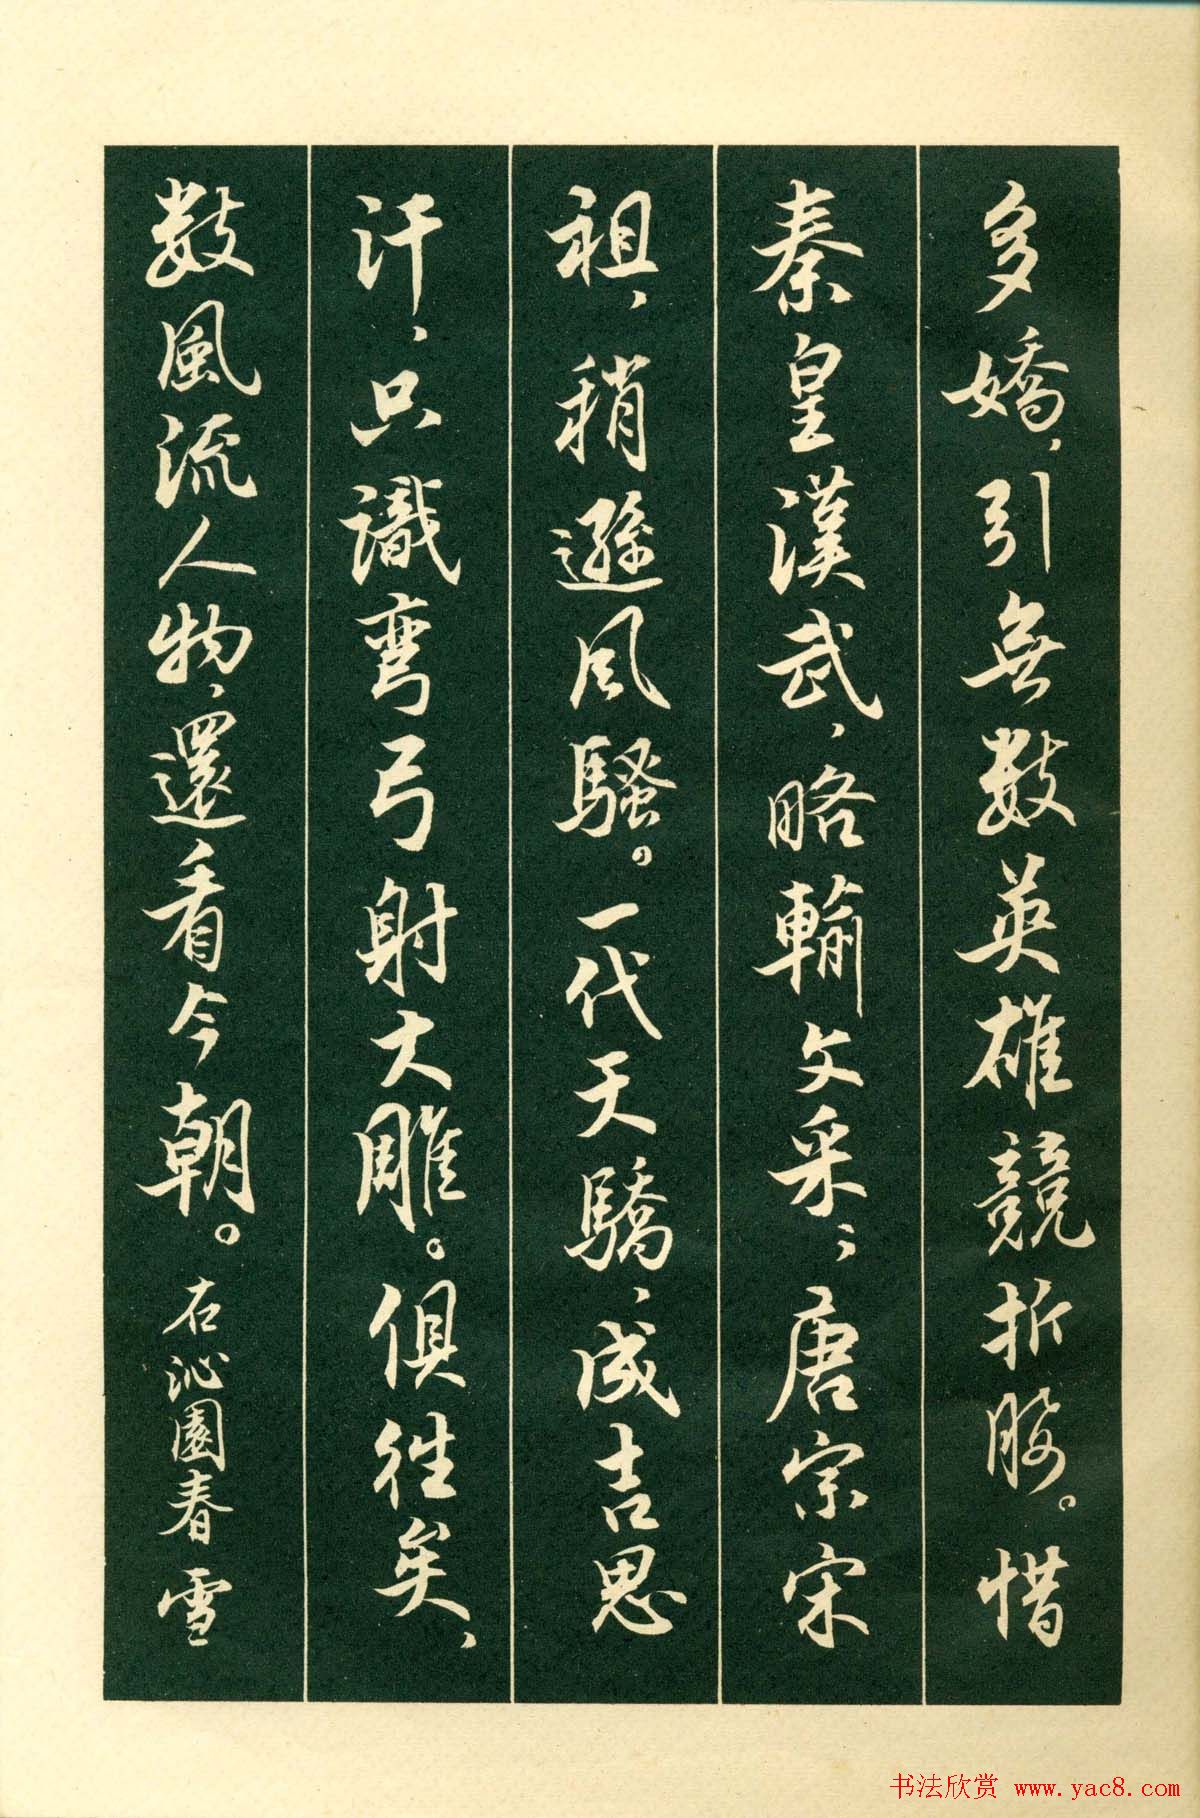 多嬌，引無數英雄競折腰。惜
秦皇漢武，略輸文采；唐宗宋
祖，稍遜風騷。一代天驕，成吉思
汗，只識彎弓射大雕。俱往矣，
數風流人物，還看今朝。右沁園春 雪
书法欣赏 www.yac8.com